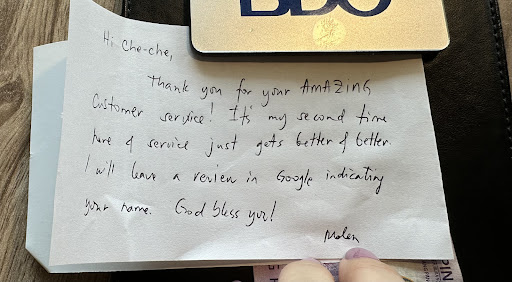 BDO
Hi Che-che,
Thank you for your AMAZING
Customer service! It's my second time
here & service just gets better & better.
I will leave a review in Google indicating
your name. God bless you!